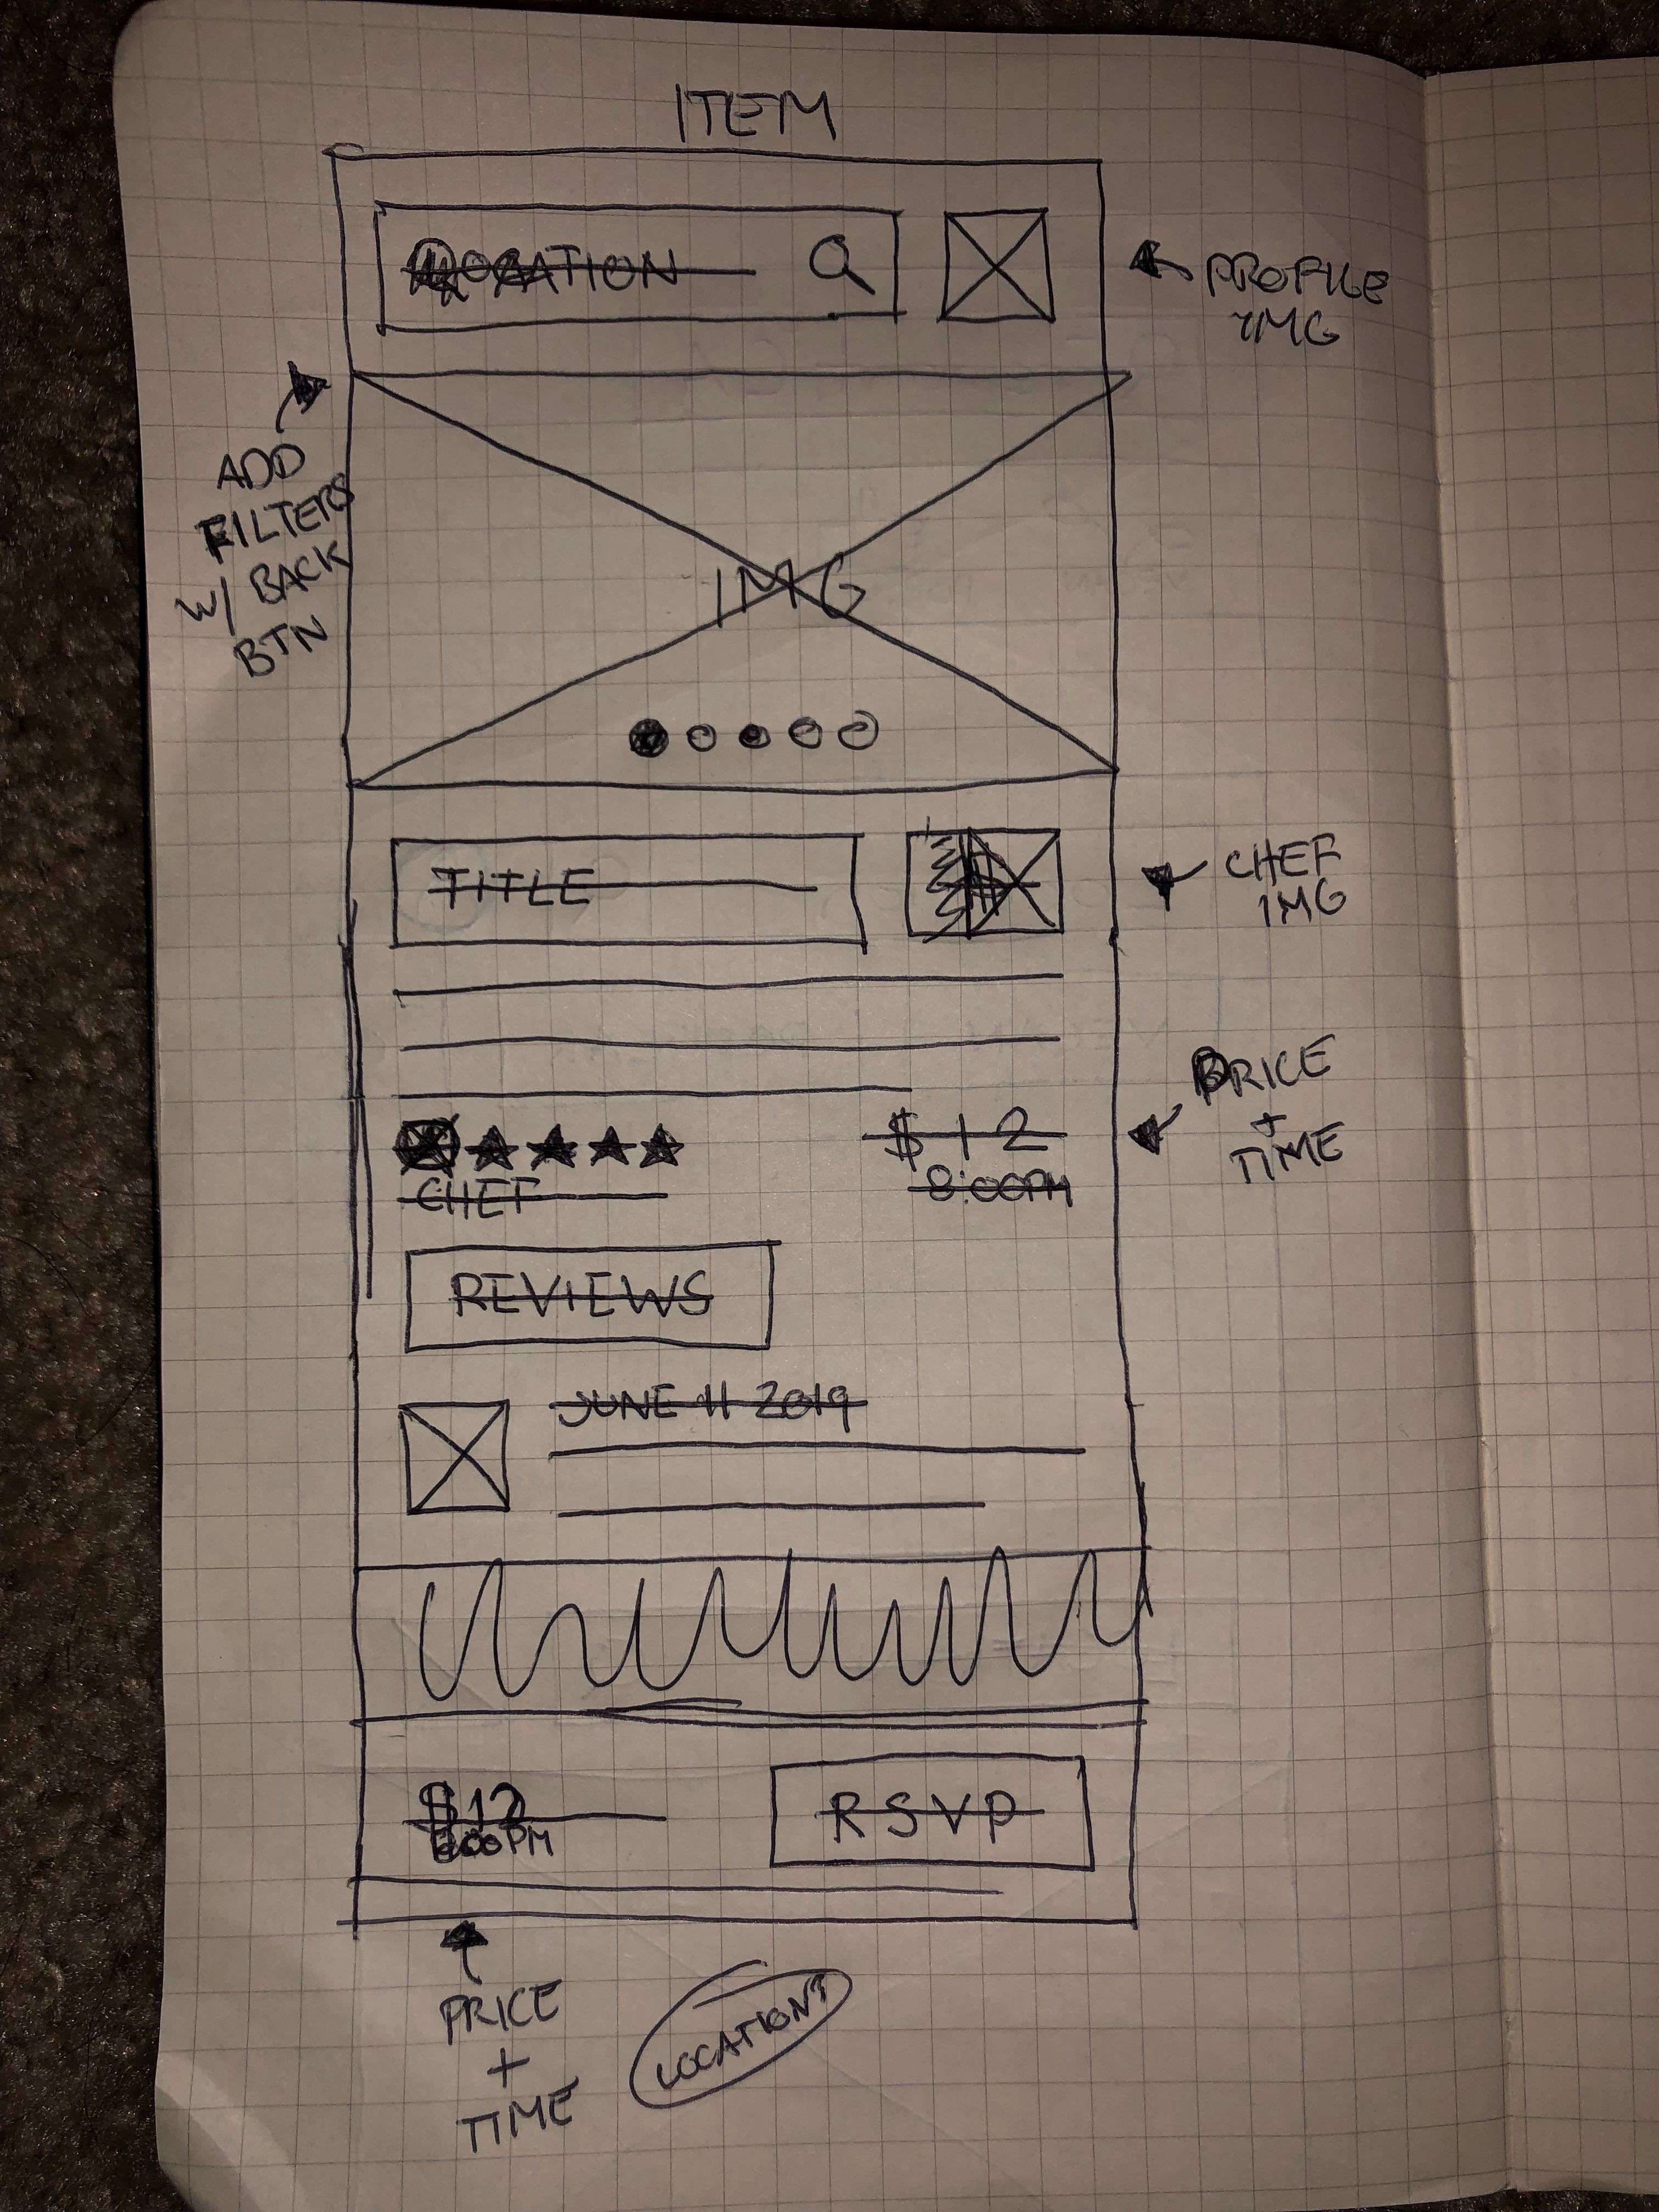 ITEM
LOCATION
PROFILE
IMG
ADD
FILTERS
W/ BACK
BTN
IMG
TITLE
CHEF
IMG
PRICE
+
TIME
$12
8:00PM
CHEF
REVIEWS
JUNE 11 2019
$12
8:00PM
RSVP
PRICE
+
TIME
LOCATION?